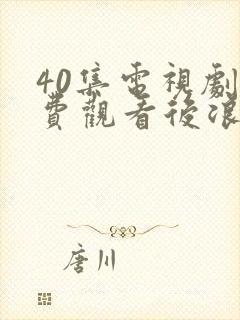 40集電視劇
費觀看後浪
唐川